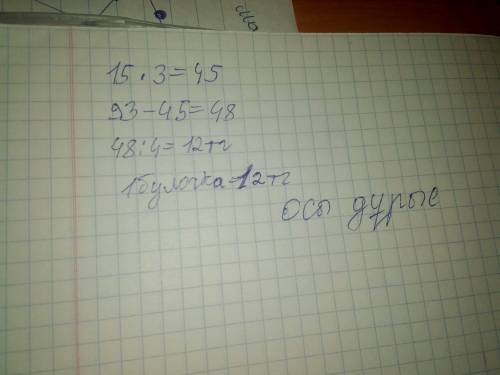 15 · 3 = 45
93 - 45 = 48
48 : 4 = 12 тг
1 булочка - 12 тг
Осы дурыс